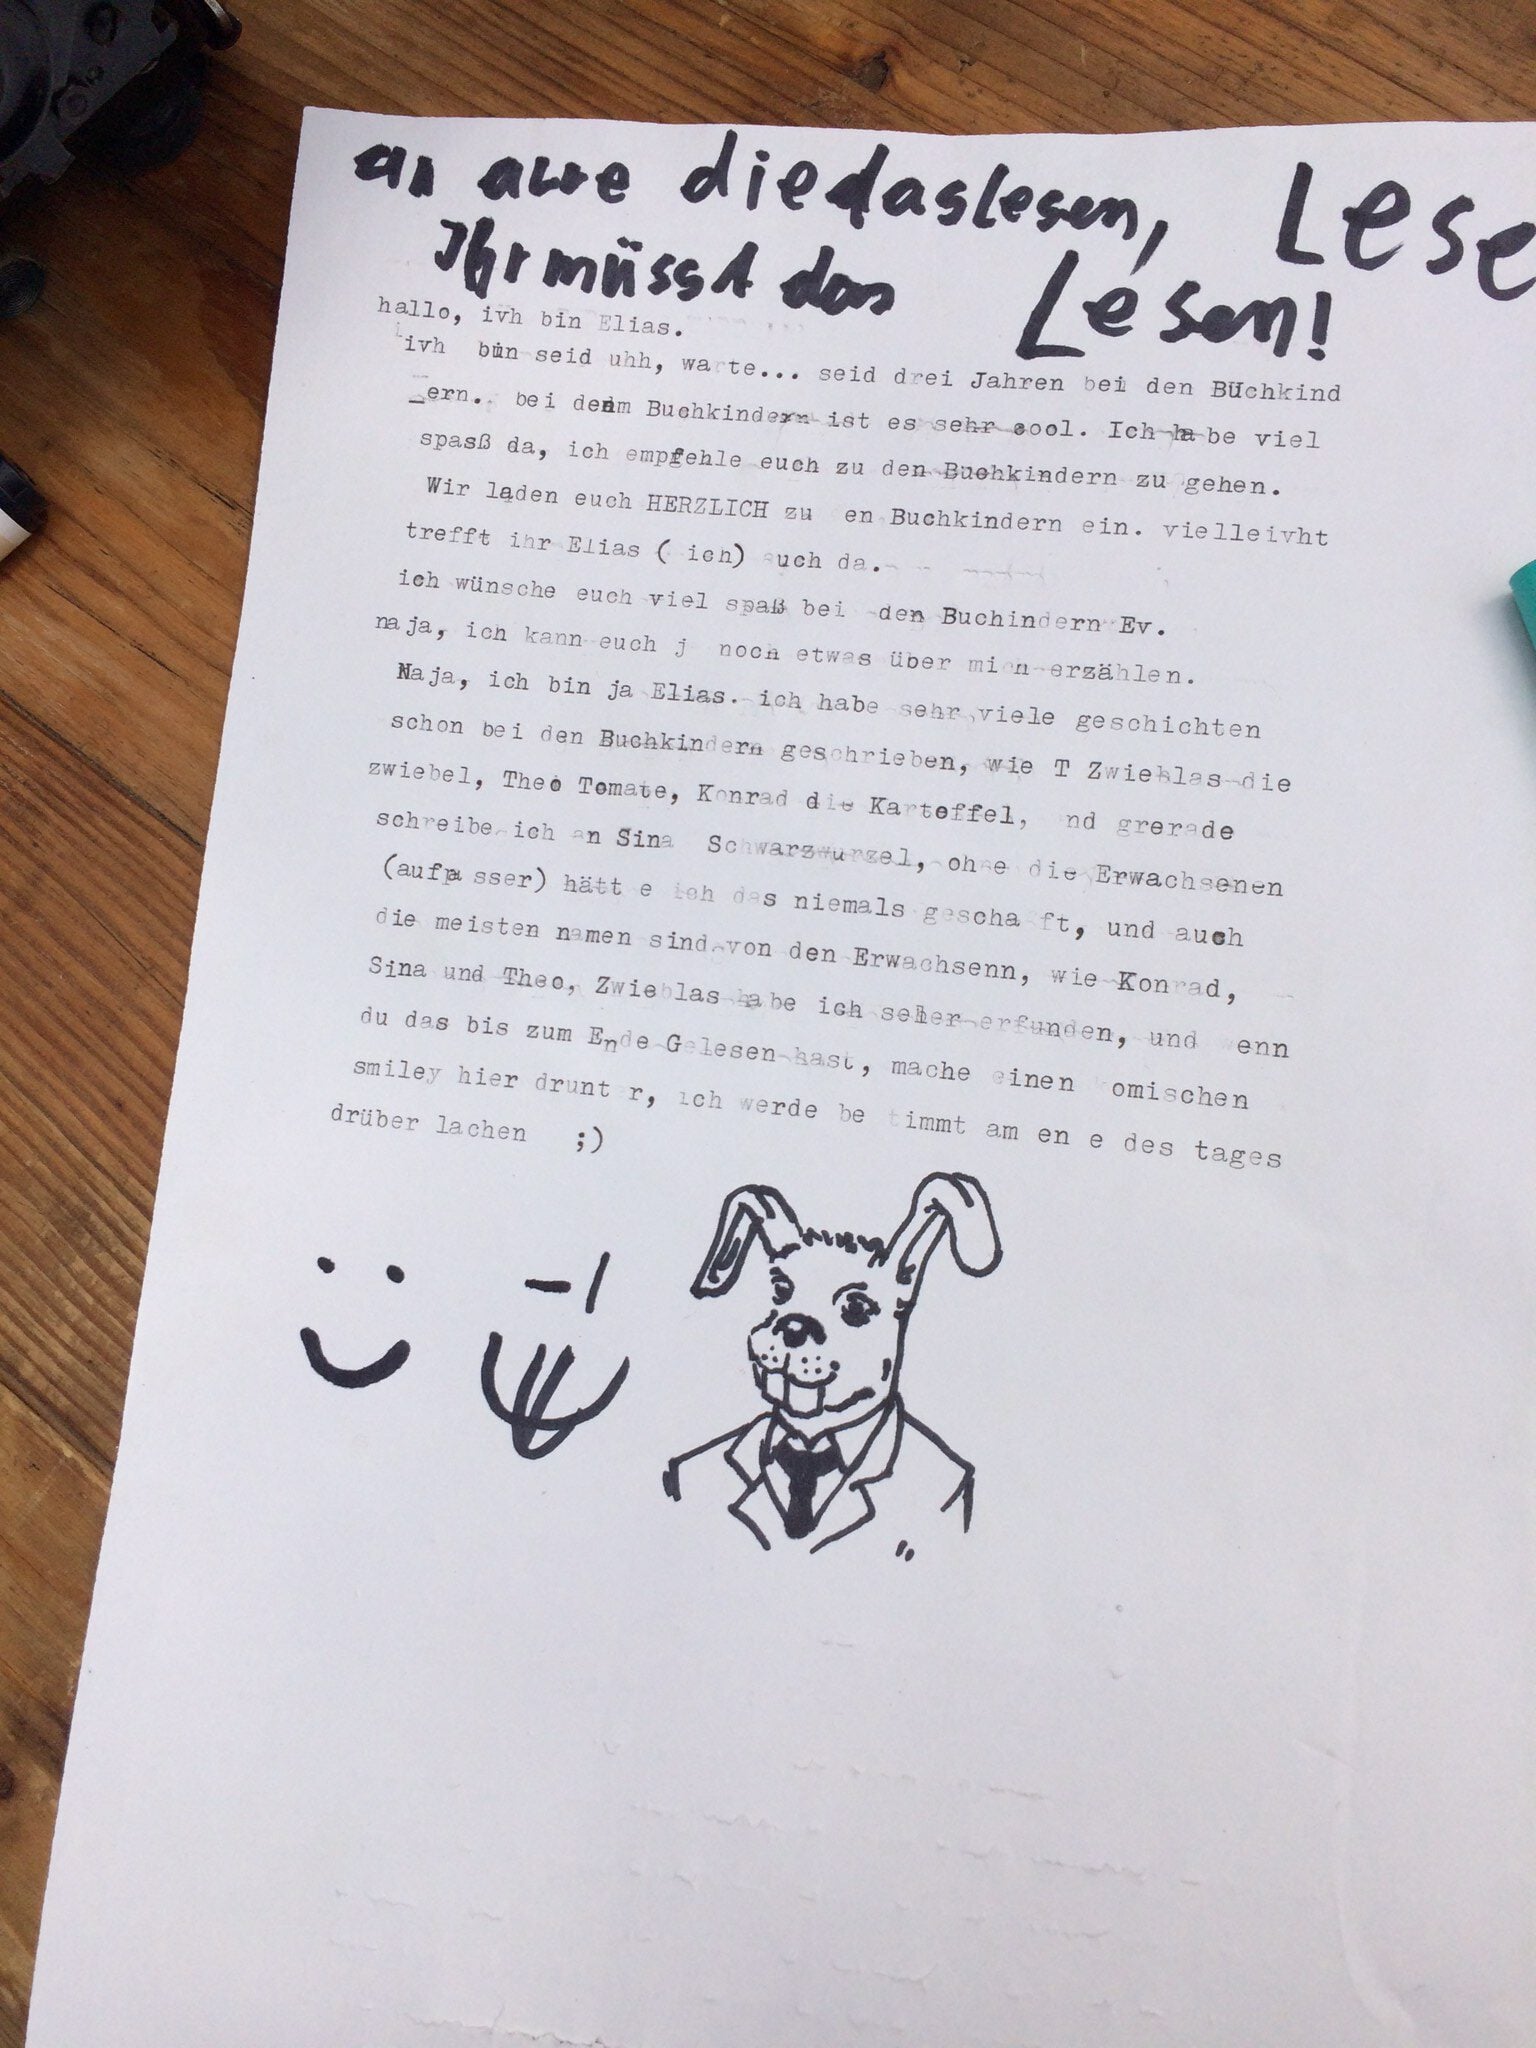 an alle die das lesen, Lese
Ihr müsst das Lesen!
hallo, ivh bin Elias.
ivh bin seid uhh, warte... seid drei Jahren bei den BUchkind
_ern. bei denm Buchkindern ist es sehr cool. Ich habe viel
spasß da, ich empfehle euch zu den Buchkindern zu gehen.
Wir laden euch HERZLICH zu en Buchkindern ein. vielleivht
trefft ihr Elias ( ich) auch da.
ich wünsche euch viel spaß bei den Buchindern Ev.
naja, ich kann euch j noch etwas über mich erzählen.
Naja, ich bin ja Elias. ich habe sehr viele geschichten
schon bei den Buchkindern geschrieben, wie T Zwieblas die
zwiebel, Theo Tomate, Konrad die Kartoffel, nd grerade
schreibe ich an Sina Schwarzwurzel, ohne die Erwachsenen
(aufpa sser) hätt e ich das niemals gescha ft, und auch
die meisten namen sind von den Erwachsenn, wie Konrad,
Sina und Theo, Zwieblas habe ich selber erfunden, und wenn
du das bis zum Ende Gelesen hast, mache einen komischen
smiley hier drunt r, ich werde be timmt am en e des tages
drüber lachen ;)